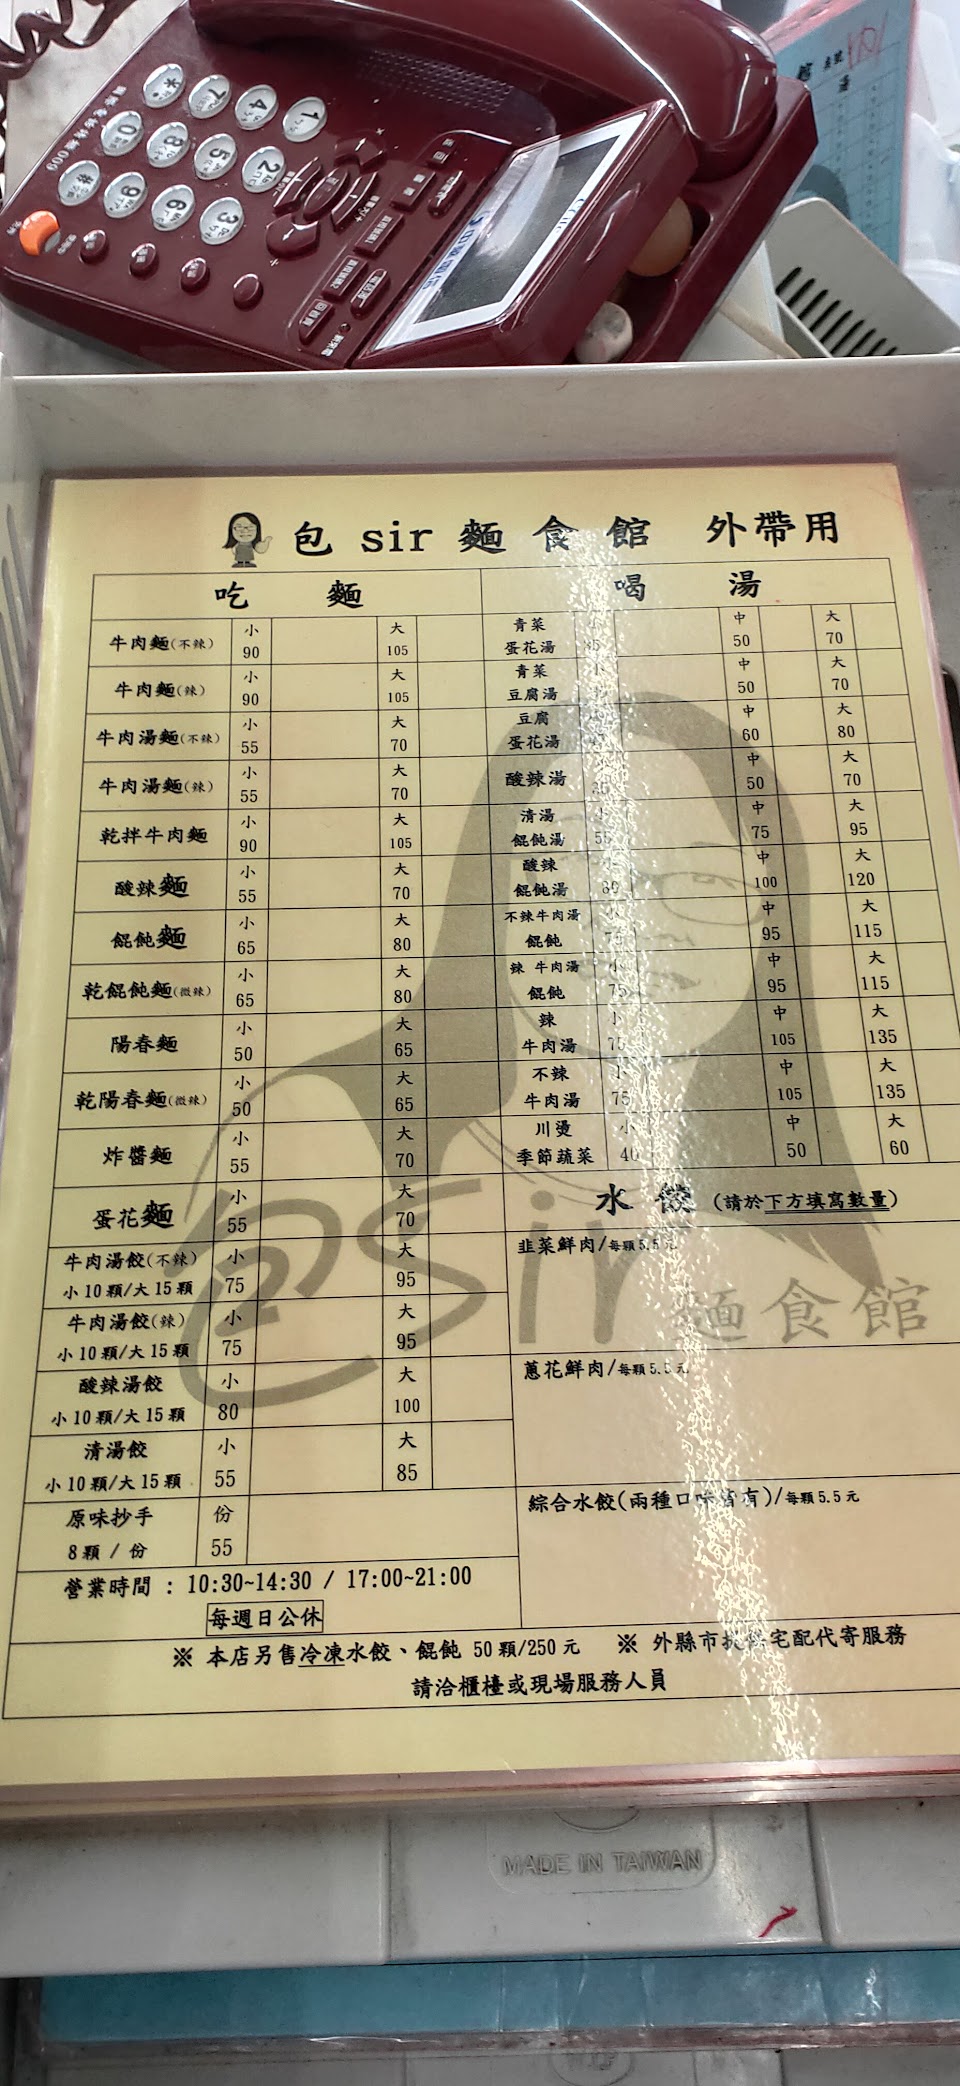 包 sir 麵 食 館 外帶用
吃 麵
牛肉麵(不辣) 小 90 大 105
牛肉麵(辣) 小 90 大 105
牛肉湯麵(不辣) 小 55 大 70
牛肉湯麵(辣) 小 55 大 70
乾拌牛肉麵 小 90 大 105
酸辣麵 小 55 大 70
餛飩麵 小 65 大 80
乾餛飩麵(微辣) 小 65 大 80
陽春麵 小 50 大 65
乾陽春麵(微辣) 小 50 大 65
炸醬麵 小 55 大 70
蛋花麵 小 55 大 70
牛肉湯餃(不辣) 小 75 大 95
小10顆/大15顆
牛肉湯餃(辣) 小 75 大 95
小10顆/大15顆
酸辣湯餃 小 80 大 100
小10顆/大15顆
清湯餃 小 55 大 85
小10顆/大15顆
原味抄手 份 55
8顆 / 份
營業時間 : 10:30~14:30 / 17:00~21:00
每週日公休
喝 湯
青菜 蛋花湯 中 50 大 70
青菜 豆腐湯 中 50 大 70
豆腐 蛋花湯 中 60 大 80
酸辣湯 中 50 大 70
清湯 餛飩湯 55 中 75 大 95
酸辣 餛飩湯 中 100 大 120
不辣牛肉湯 餛飩 中 95 大 115
辣 牛肉湯 餛飩 小 75 中 95 大 115
辣 牛肉湯 小 中 105 大 135
不辣 牛肉湯 小 75 中 105 大 135
川燙 季節蔬菜 小 40 中 50 大 60
水 餃 (請於下方填寫數量)
韭菜鮮肉/每顆5.5元
蔥花鮮肉/每顆5.5元
綜合水餃(兩種口味皆有)/每顆5.5元
包Sir 麵食館
※ 本店另售冷凍水餃、餛飩 50顆/250元 ※ 外縣市 宅配代寄服務
請洽櫃檯或現場服務人員
MADE IN TAIWAN